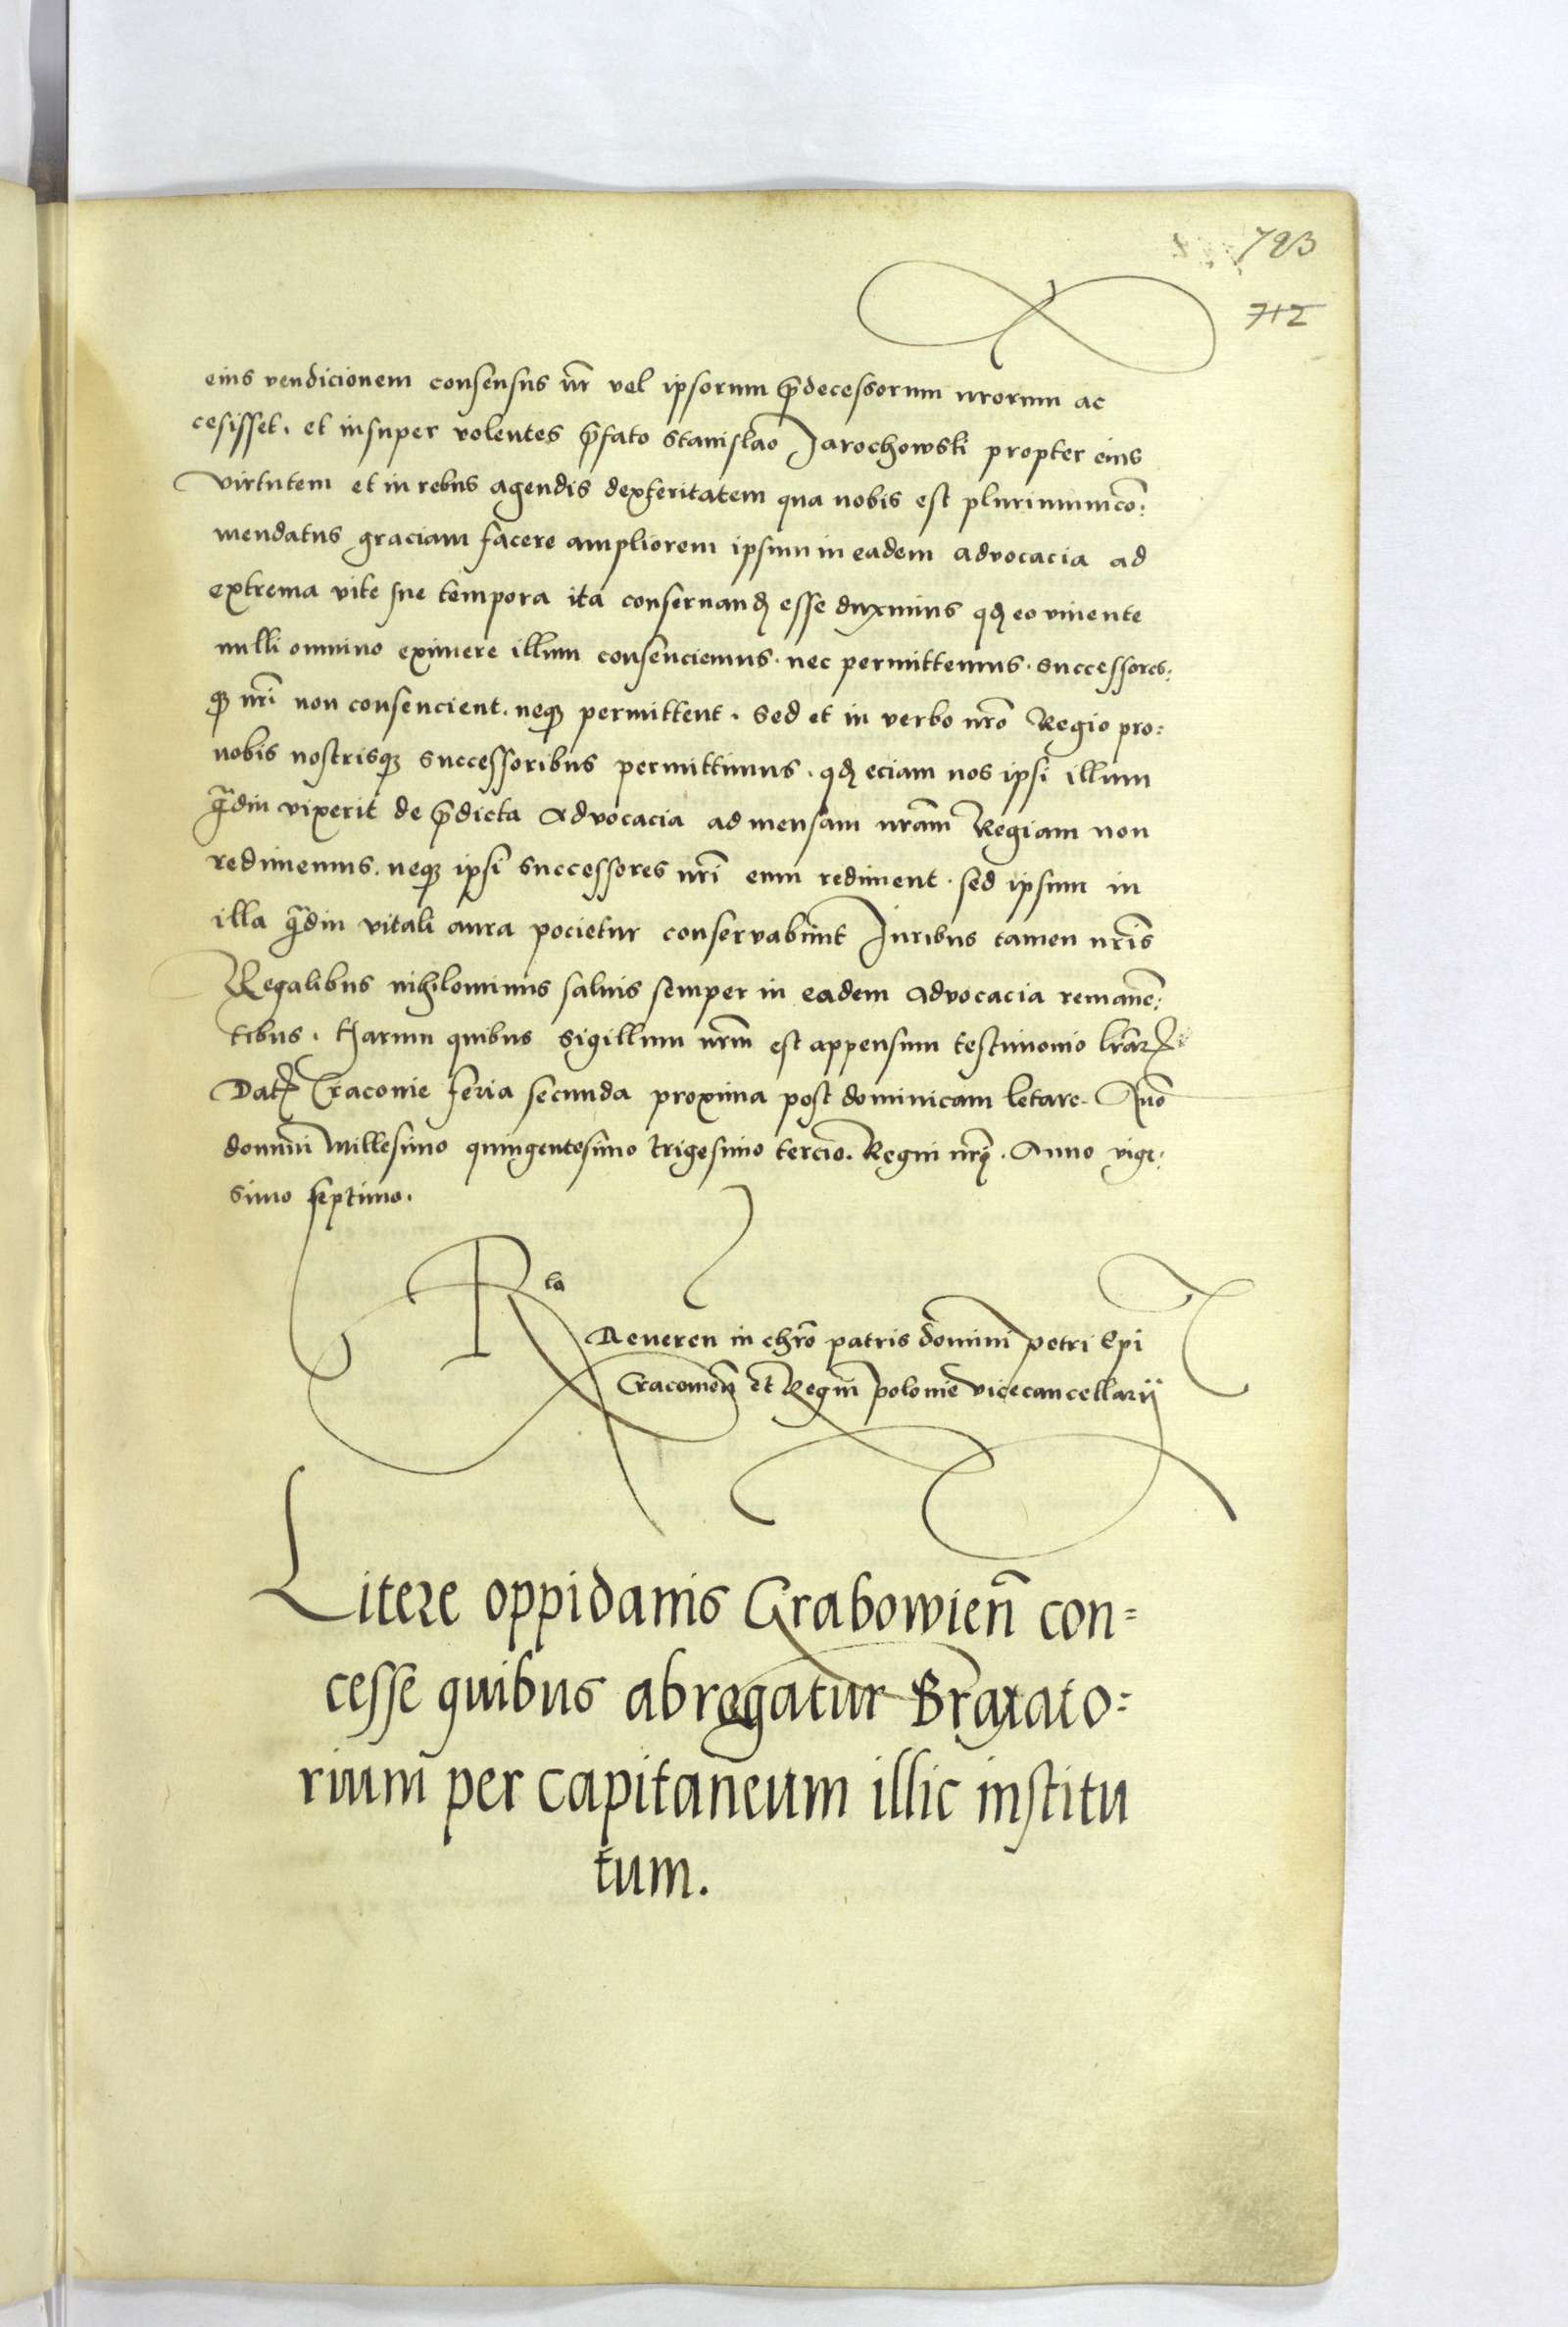 723
712
eius vendicionem consensus nr̄ vel ipsorum p̄decessorum nrorum ac
cesisset. et insuper volentes p̄fato Stanislao Jarochowski propter eius
virtutem et in rebus agendis dexteritatem qua nobis est plurimum cō:
mendatus graciam facere ampliorem ipsum in eadem advocacia ad
extrema vite sue tempora ita conservandꝫ esse duximus qđ eo vivente
nulli omnino eximere illum consenciemus. nec permittemus. successores:
qꝫ nr̄i non consencient. neqꝫ permittent. Sed et in verbo nr̄o Regio pro:
nobis nostrisqꝫ successoribus permittimus. qđ eciam nos ipsi illum
q̄diu vixerit de p̄dicta Advocacia ad mensam nrām Regiam non
redimemus. neqꝫ ipsi successores nr̄i eum rediment. sed ipsum in
illa q̄diu vitali aura pocietur conservabunt Juribus tamen nr̄is
Regalibus nihilominus salvis semper in eadem Advocacia remanē:
tibus. Harum quibus Sigillum nrm̄ est appensum testimonio lrarꝝ
Datꝫ Cracovie feria secunda proxima post dominicam letare. Anō
domini Millesimo quingentesimo trigesimo tercio. Regni nrī. Anno vige:
simo septimo.
Rla
Reveren in chrō patris domini petri Epi
Cracovień et Regni polonie vicecancellarij
Litere oppidanis Grabowień con=
cesse quibus abrogatur Braxato=
rium per capitaneum illic institu
tum.